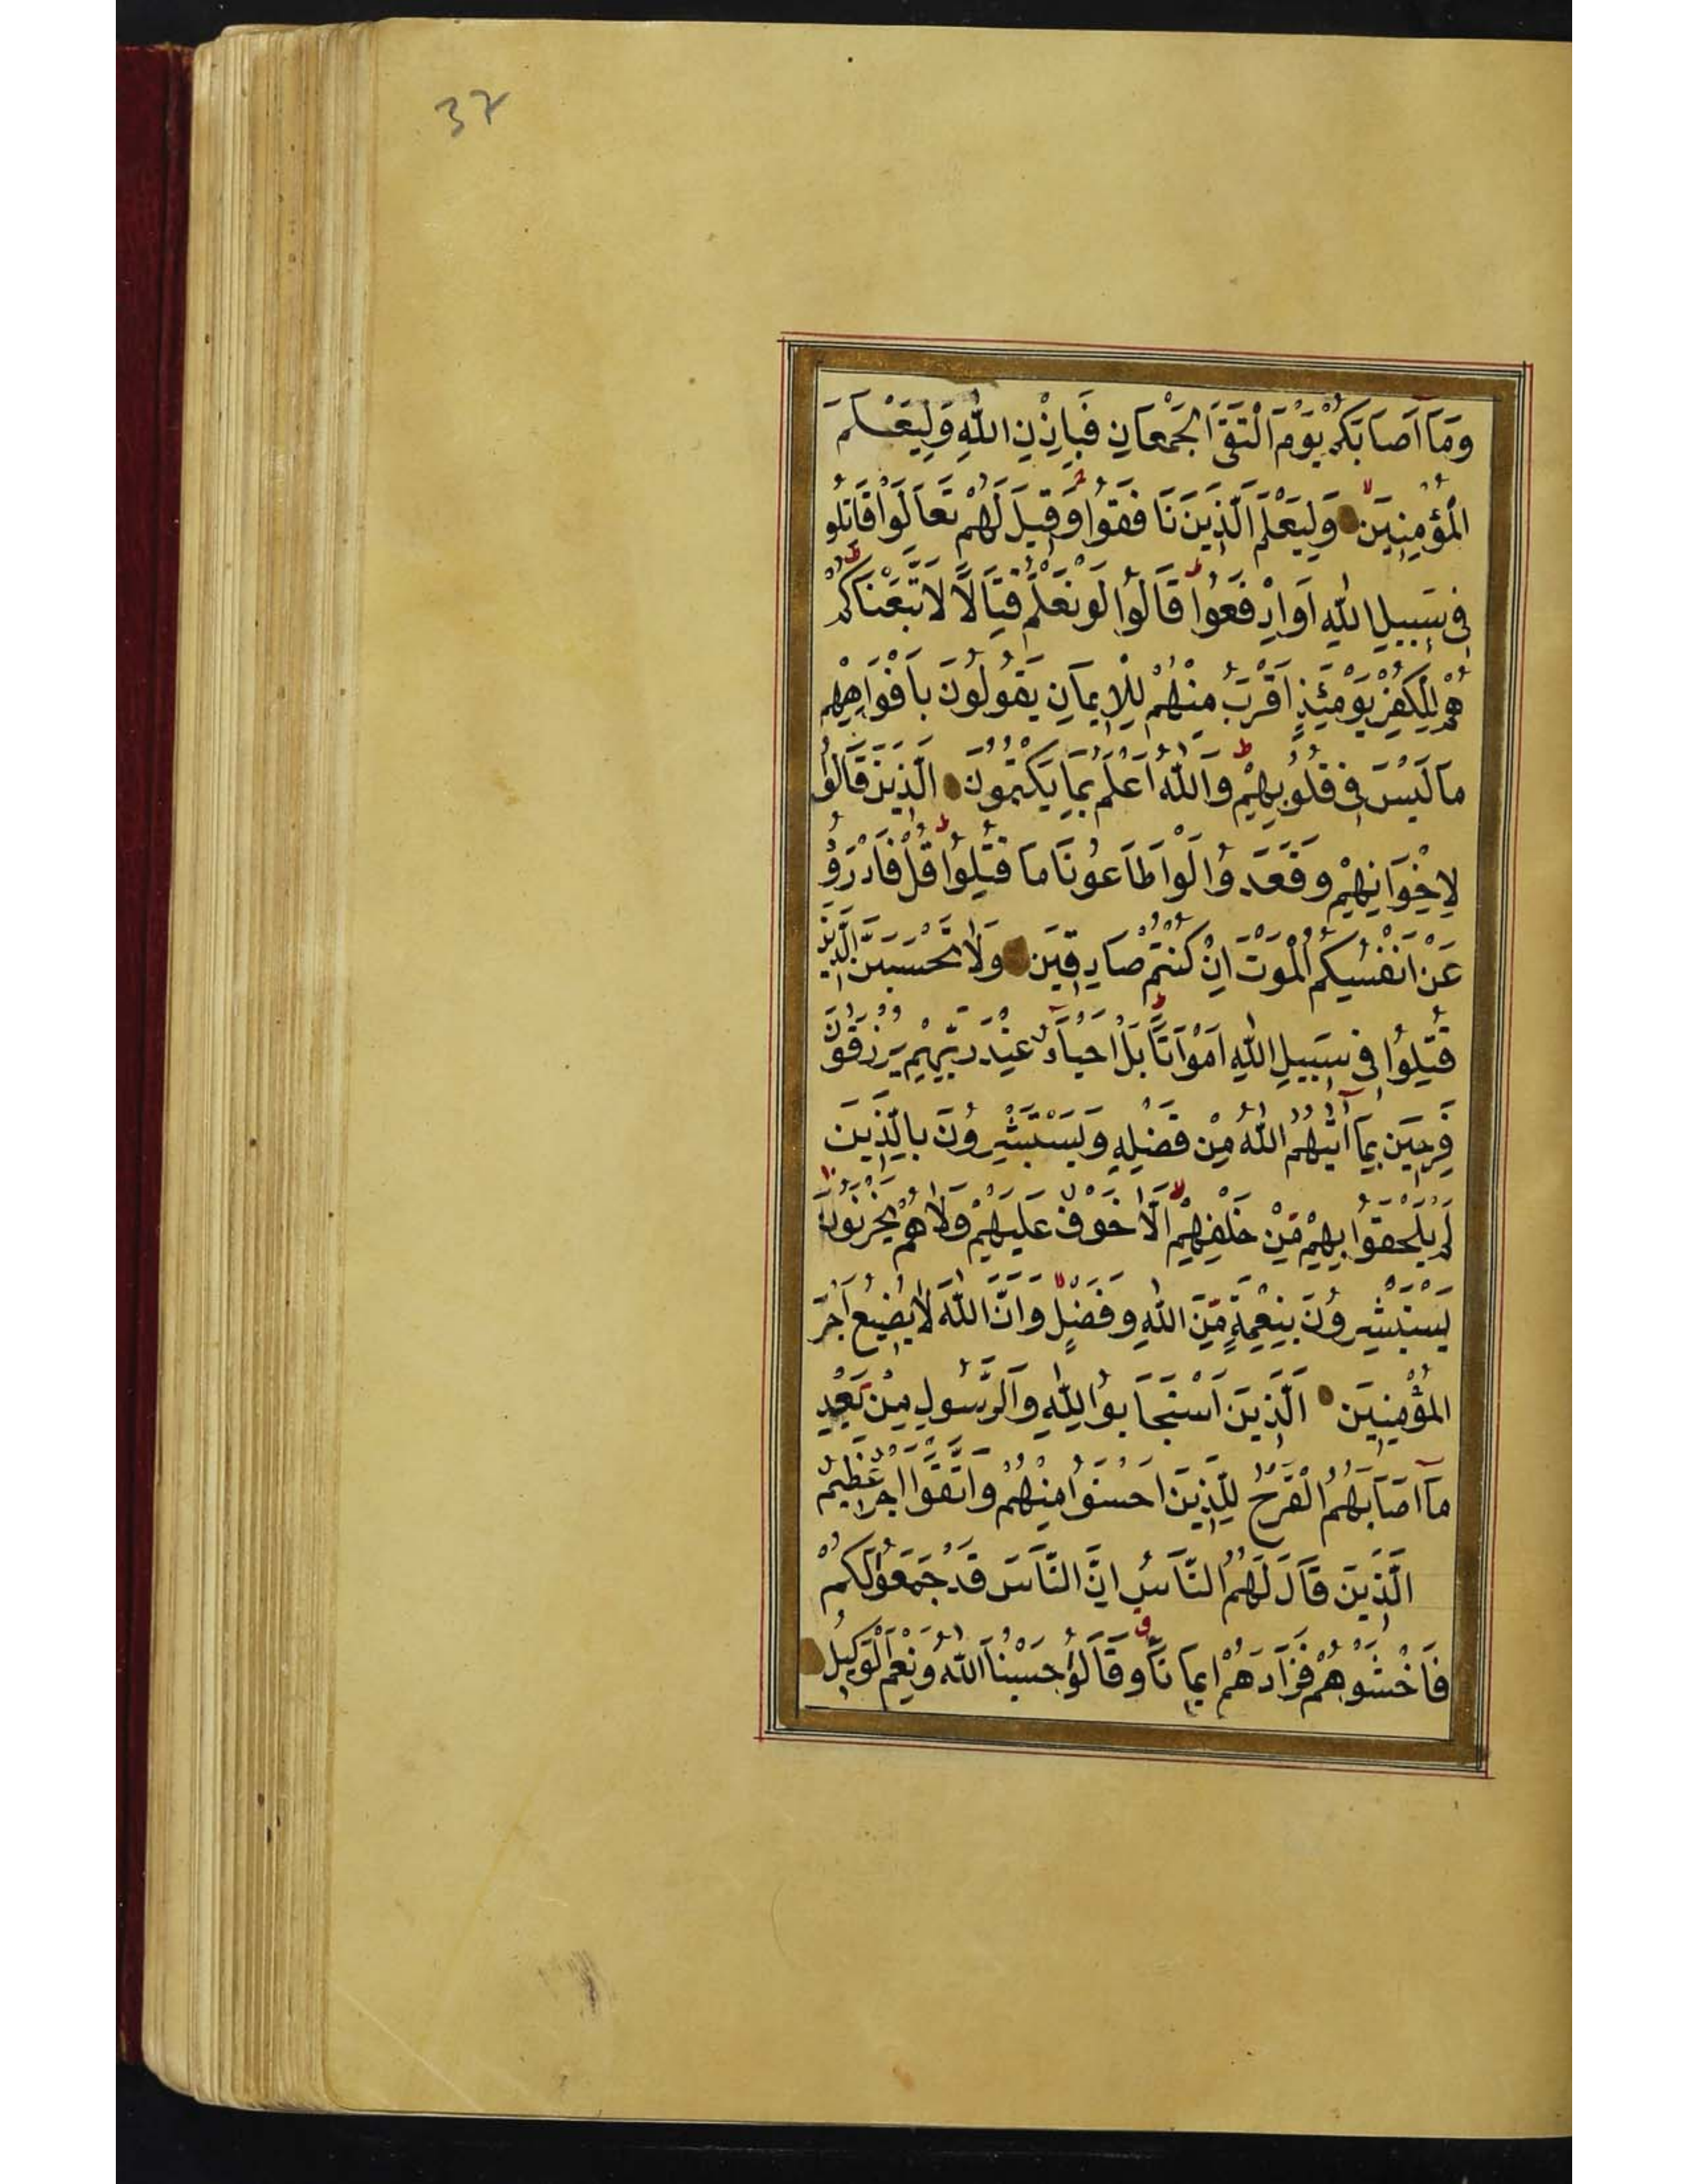 37
وَمَآ اَصَابَكُمْ يَوْمَ الْتَقَى الْجَمْعَانِ فَبِاِذْنِ اللّٰهِ وَلِيَعْلَمَ
الْمُؤْمِنِيَنَ وَلِيَعْلَمَ الَّذِينَ نَافَقُوا وَقِيلَ لَهُمْ تَعَالَوْا قَاتِلُو
فِى سَبِيلِ اللّٰهِ اَوِ ادْفَعُوا قَالُوا لَوْ نَعْلَمُ قِتَالًا لَاتَّبَعْنَاكُمْ
هُمْ لِلْكُفْرِ يَوْمَئِذٍ اَقْرَبُ مِنْهُمْ لِلْاِيمَانِ يَقُولُونَ بِاَفْوَاهِهِمْ
مَا لَيْسَ فِى قُلُوبِهِمْ وَاللّٰهُ اَعْلَمُ بِمَا يَكْتُمُونَ الَّذِينَ قَالُوا
لِاِخْوَانِهِمْ وَقَعَدُوا لَوْ اَطَاعُونَا مَا قُتِلُوا قُلْ فَادْرَؤُ
عَنْ اَنْفُسِكُمُ الْمَوْتَ اِنْ كُنْتُمْ صَادِقِيَن وَلَا تَحْسَبَنَّ الَّذِينَ
قُتِلُوا فِى سَبِيلِ اللّٰهِ اَمْوَاتًا بَلْ اَحْيَآءٌ عِنْدَ رَبِّهِمْ يُرْزَقُونَ
فَرِحِيَن بِمَآ اٰتٰيهُمُ اللّٰهُ مِنْ فَضْلِهِ وَيَسْتَبْشِرُونَ بِالَّذِينَ
لَمْ يَلْحَقُوا بِهِمْ مِنْ خَلْفِهِمْ اَلَّا خَوْفٌ عَلَيْهِمْ وَلَا هُمْ يَحْزَنُونَ
يَسْتَبْشِرُونَ بِنِعْمَةٍ مِنَ اللّٰهِ وَفَضْلٍ وَاَنَّ اللّٰهَ لَا يُضِيعُ اَجْرَ
الْمُؤْمِنِيَن اَلَّذِينَ اسْتَجَابُوا لِلّٰهِ وَالرَّسُولِ مِنْ بَعْدِ
مَآ اَصَابَهُمُ الْقَرْحُ لِلَّذِينَ اَحْسَنُوا مِنْهُمْ وَاتَّقَوْا اَجْرٌ عَظِيمٌ
الَّذِينَ قَالَ لَهُمُ النَّاسُ اِنَّ النَّاسَ قَدْ جَمَعُوا لَكُمْ
فَاخْشَوْهُمْ فَزَادَهُمْ اِيمَانًا وَقَالُوا حَسْبُنَا اللّٰهُ وَنِعْمَ الْوَكِيلُ